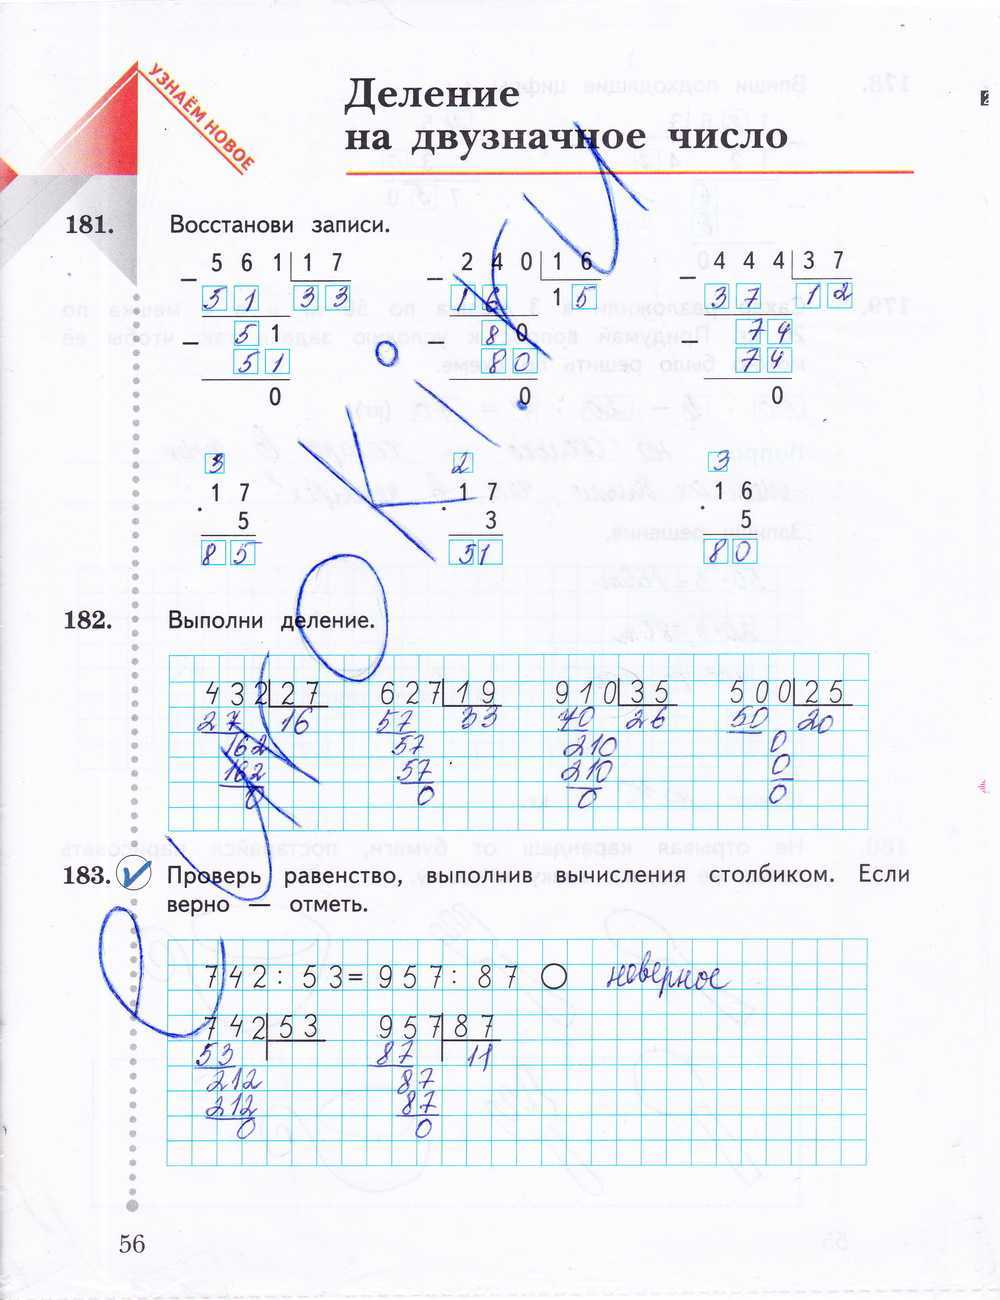 УЗНАЁМ НОВОЕ
Деление
на двузначное число
181. Восстанови записи.
5 6 1 | 1 7
− 5 1 3 3
5 1
− 5 1
0
2 4 0 | 1 6
− 1 6 1 5
8 0
− 8 0
0
4 4 4 | 3 7
− 3 7 1 2
7 4
− 7 4
0
3
1 7
· 5
8 5
2
1 7
· 3
5 1
3
1 6
· 5
8 0
182. Выполни деление.
4 3 2 | 2 7
2 7 16
162
162
0
6 2 7 | 1 9
57 33
57
57
0
9 1 0 | 3 5
70 26
210
210
0
5 0 0 | 2 5
50 20
0
0
0
183. Проверь равенство, выполнив вычисления столбиком. Если
верно — отметь.
7 4 2 : 5 3 = 9 5 7 : 8 7 неверное
7 4 2 | 5 3
53
212
212
0
9 5 7 | 8 7
87 11
87
87
0
56